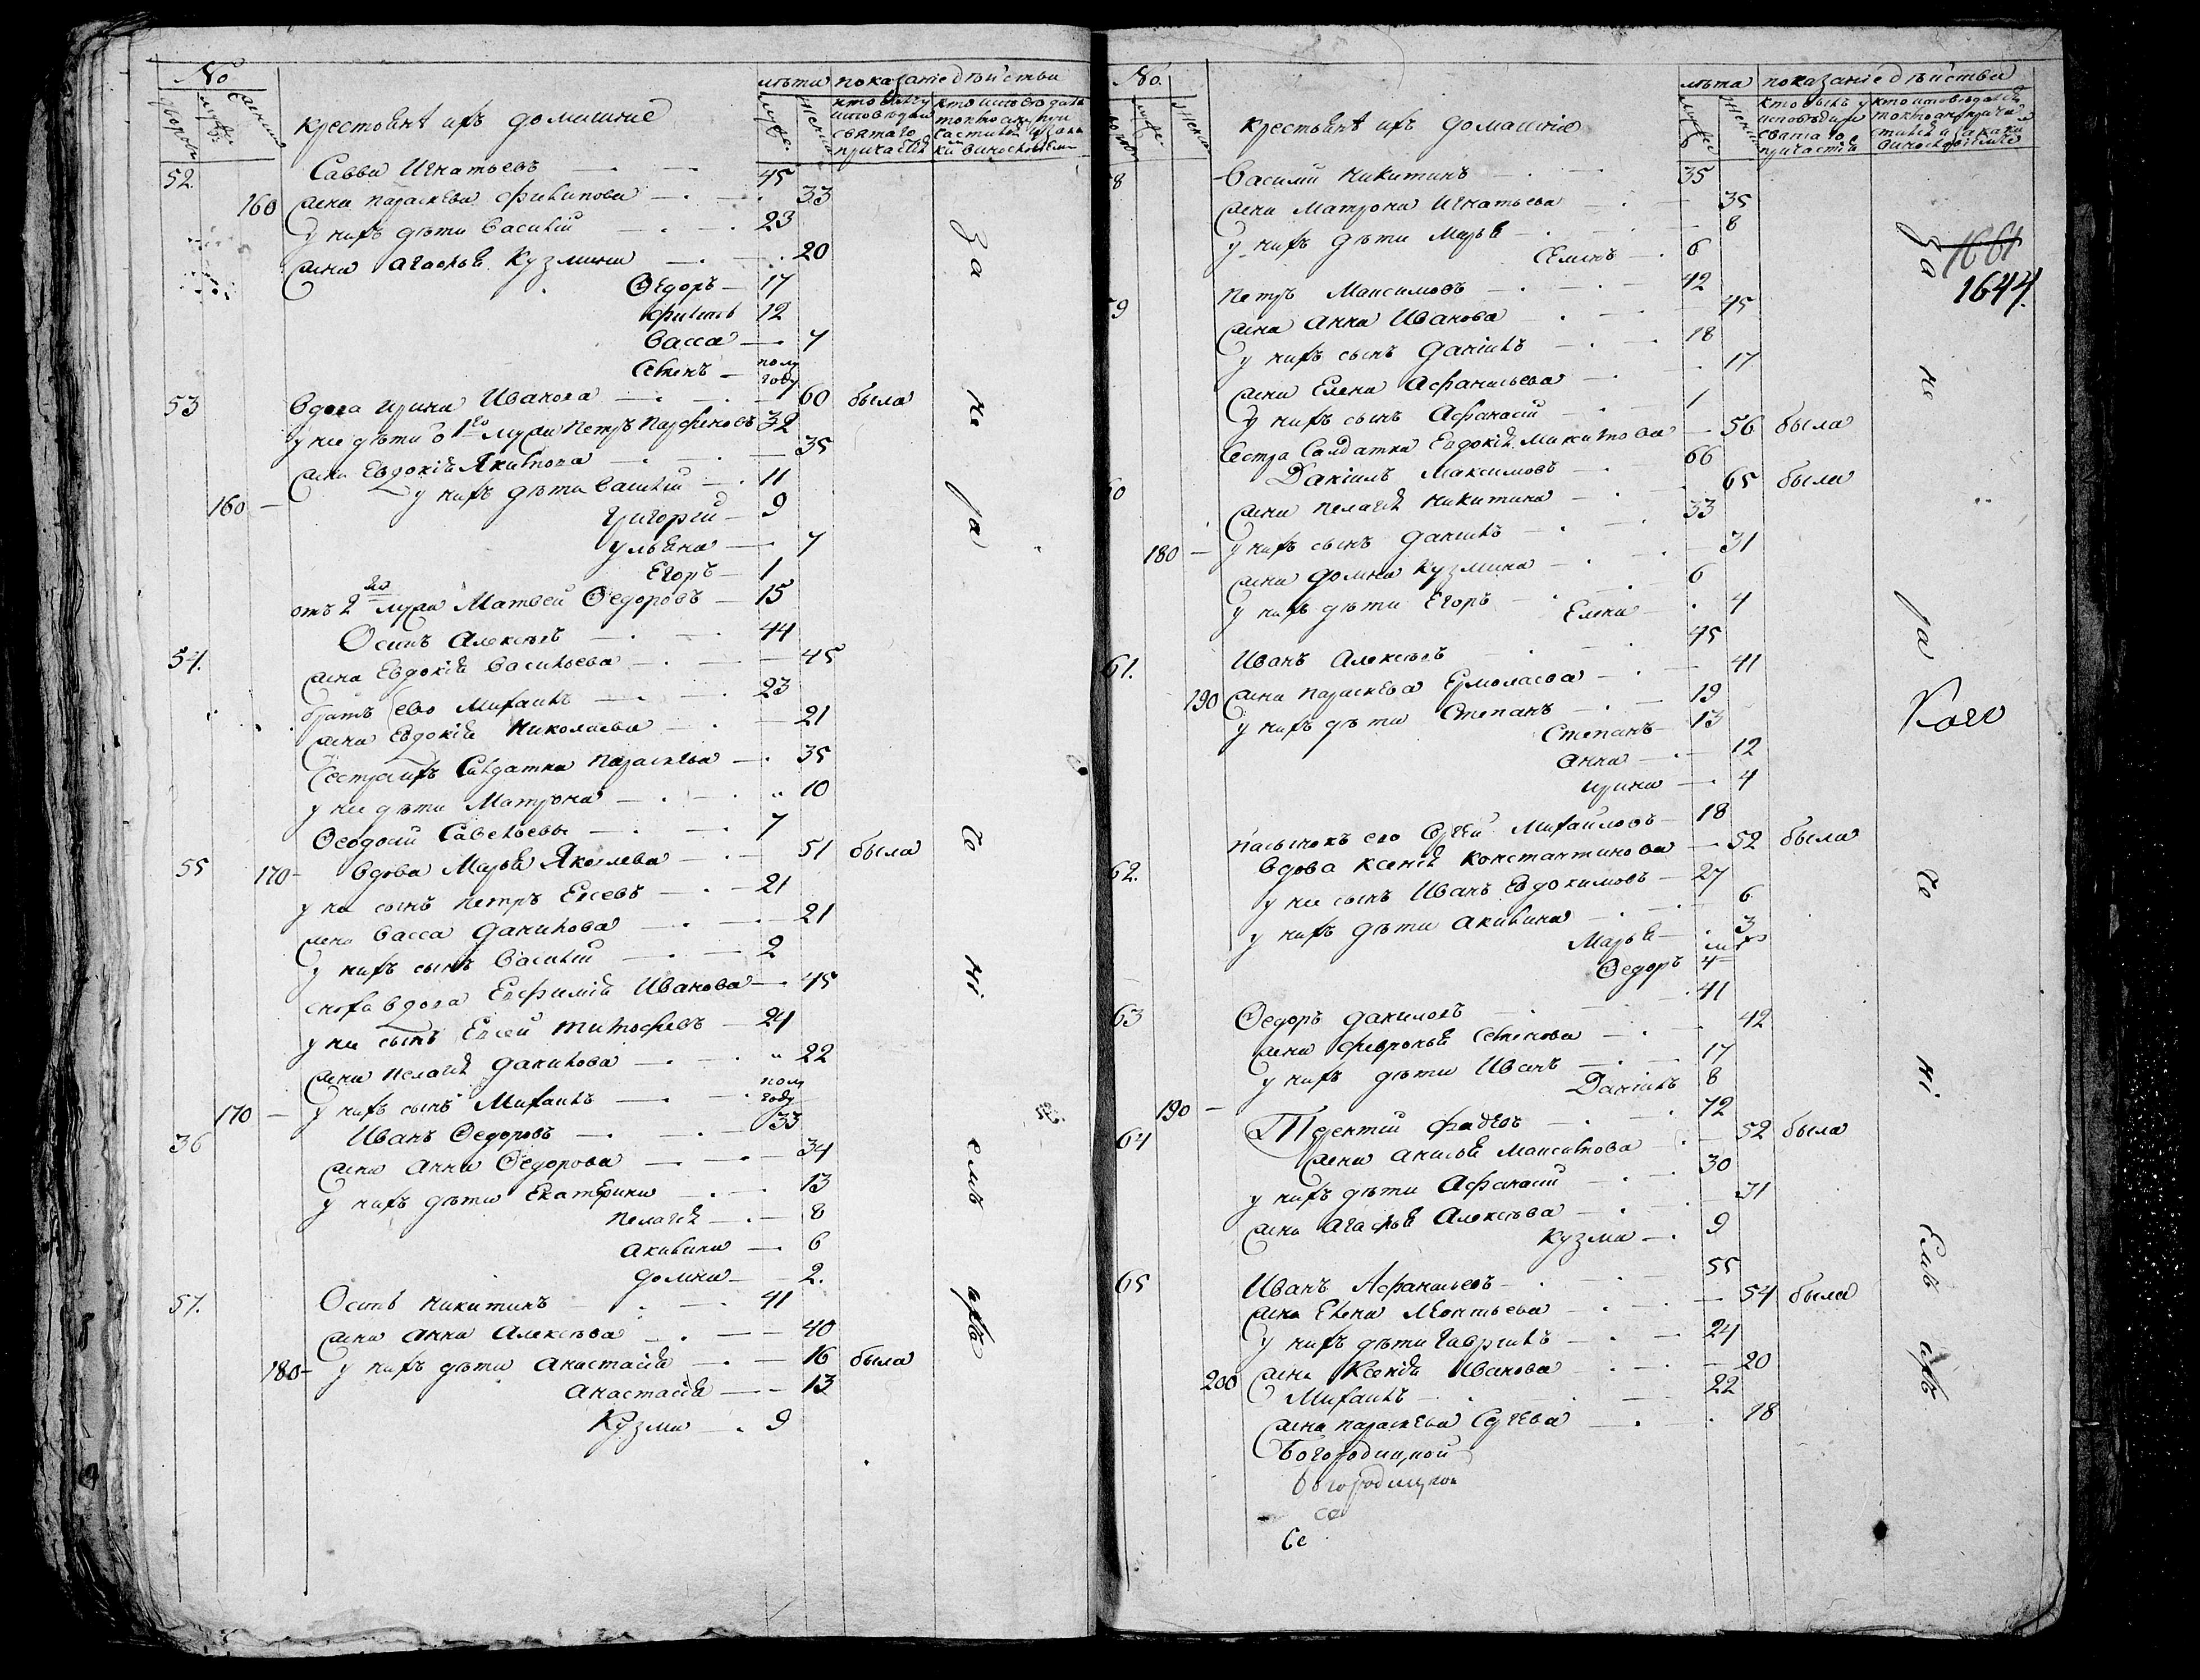 No
дворовъ
мужес.
женски
крестьянѣ ихъ домашние
мѣта показание дѣйства
мужес.
женск.
52. Савва Игнатьевъ 45
160 жена параскева филипова 33
у нихъ дѣти Василий 23
жена Агафья Кузмина 20
Ѳедоръ 17
филипъ 12
Васса 7
Семенъ полугоду
53 вдова ирина Иванова 60 была
у нее дѣти о 1го мужа Петръ Парфеновъ 32
жена Евдокия Якимова 35
у нихъ дѣти Василий 11
160 Григорей 9
ульяна 7
Егоръ 1
отъ 2го мужа Матвей Ѳедоровъ 15
54. Осипъ Алексѣевъ 44
жена Евдокия Васильева 45
братъ ево Михаилъ 23
жена Евдокия Николаева 21
сестра ихъ Салдатка параскева 35
у нее дѣти Матрона 10
Ѳеодосий Савельевы 7
55 170 вдова Марья Яковлева 51 была
у не сынъ петръ Евсевъ 21
жена Васса Данилова 21
у нихъ сынъ Василий 2
сноха вдова Евфимия Иванова 45
у ни сынъ Евсей Тимофеевъ 24
жена пелагея данилова 22
170 у нихъ сынъ Михаилъ полугоду
36 Иванъ Ѳедоровъ 33
жена Анна Ѳедорова 34
у нихъ дѣти Екатерина 13
пелагея 8
акилина 6
домна 2.
57. Осипъ никитинъ 41
жена анна Алексѣева 40
180 у нихъ дѣти анастасия 16 была
Анастасия 13
Кузма 9
за
не
ра
че
ні
емъ
ихъ
No.
мужес
женски
крестьянѣ ихъ домашние
мѣта показание дѣйства
мужес
женск
8 Василий никитинъ 35
жена Матрона Игнатьева 35
у нихъ дѣти Марья 8
Семенъ 6
1661
1644.
9 петръ Максимовъ 42
жена анна Иванова 45
у нихъ сынъ Даниилъ 18
жена Елена Афанасьева 17
у нихъ сынъ Афанасий 1
сестра Салдатка Евдокия Максимова 56 была
60 Даниилъ Максимовъ 66
жена пелагея никитина 65 была
180 у нихъ сынъ даниилъ 33
жена домна кузмина 31
у нихъ дѣти Егоръ 6
Елена 4
61. Иванъ Алексѣевъ 45
190 жена параскева Ермолаева 41
у нихъ дѣти Степанъ 19
Степанъ 13
анна 12
ирина 4
пасынокъ ево Сергей Михайловъ 18
62. вдова ксения константинова 52 была
у нее сынъ Иванъ Евдокимовъ 27
у нихъ дѣти акилина 6
Марья 3
Ѳедоръ 4
63 Ѳедоръ даниловъ 41
жена февронья Семенова 42
у нихъ дѣти Иванъ 17
Даниилъ 8
190
64 Терентий фадѣевъ 72
жена анисья Максимова 52 была
у нихъ дѣти Афанасий 30
жена агафья Алексѣева 31
Кузма 9
65 Иванъ Афанасьевъ 55
жена Елена Леонтьева 54 была
у нихъ дѣти Гавриилъ 24
200 жена Ксения Иванова 20
Михаилъ 22
жена параскева Сергева 18
Богородицкой
богородицкой
се
Се
за
не
ра
че
ні
емъ
ихъ